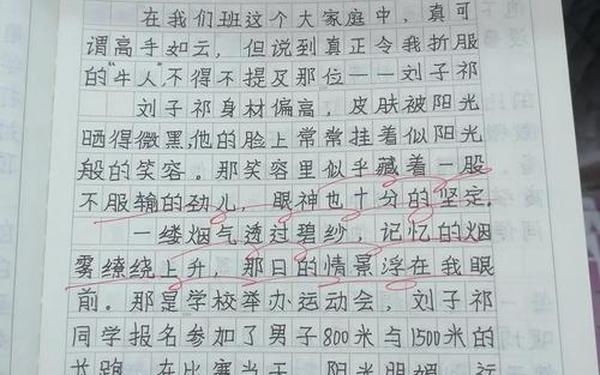 在我们班这个大家庭中，真可
谓高手如云，但说到真正令我折服
的“牛人”，不得不提及那位——刘子祁
刘子祁身材偏高，皮肤被阳光
晒得微黑，他的脸上常常挂着似阳光
般的笑容。那笑容里似乎藏着一股
不服输的劲儿，眼神也十分的坚定。
一缕烟气透过碧纱，记忆的烟
雾缭绕上升，那日的情景浮在我眼
前。那是学校举办运动会，刘子祁
同学报名参加了男子800米与1500米的
长跑。在比赛当天，阳光明媚，运